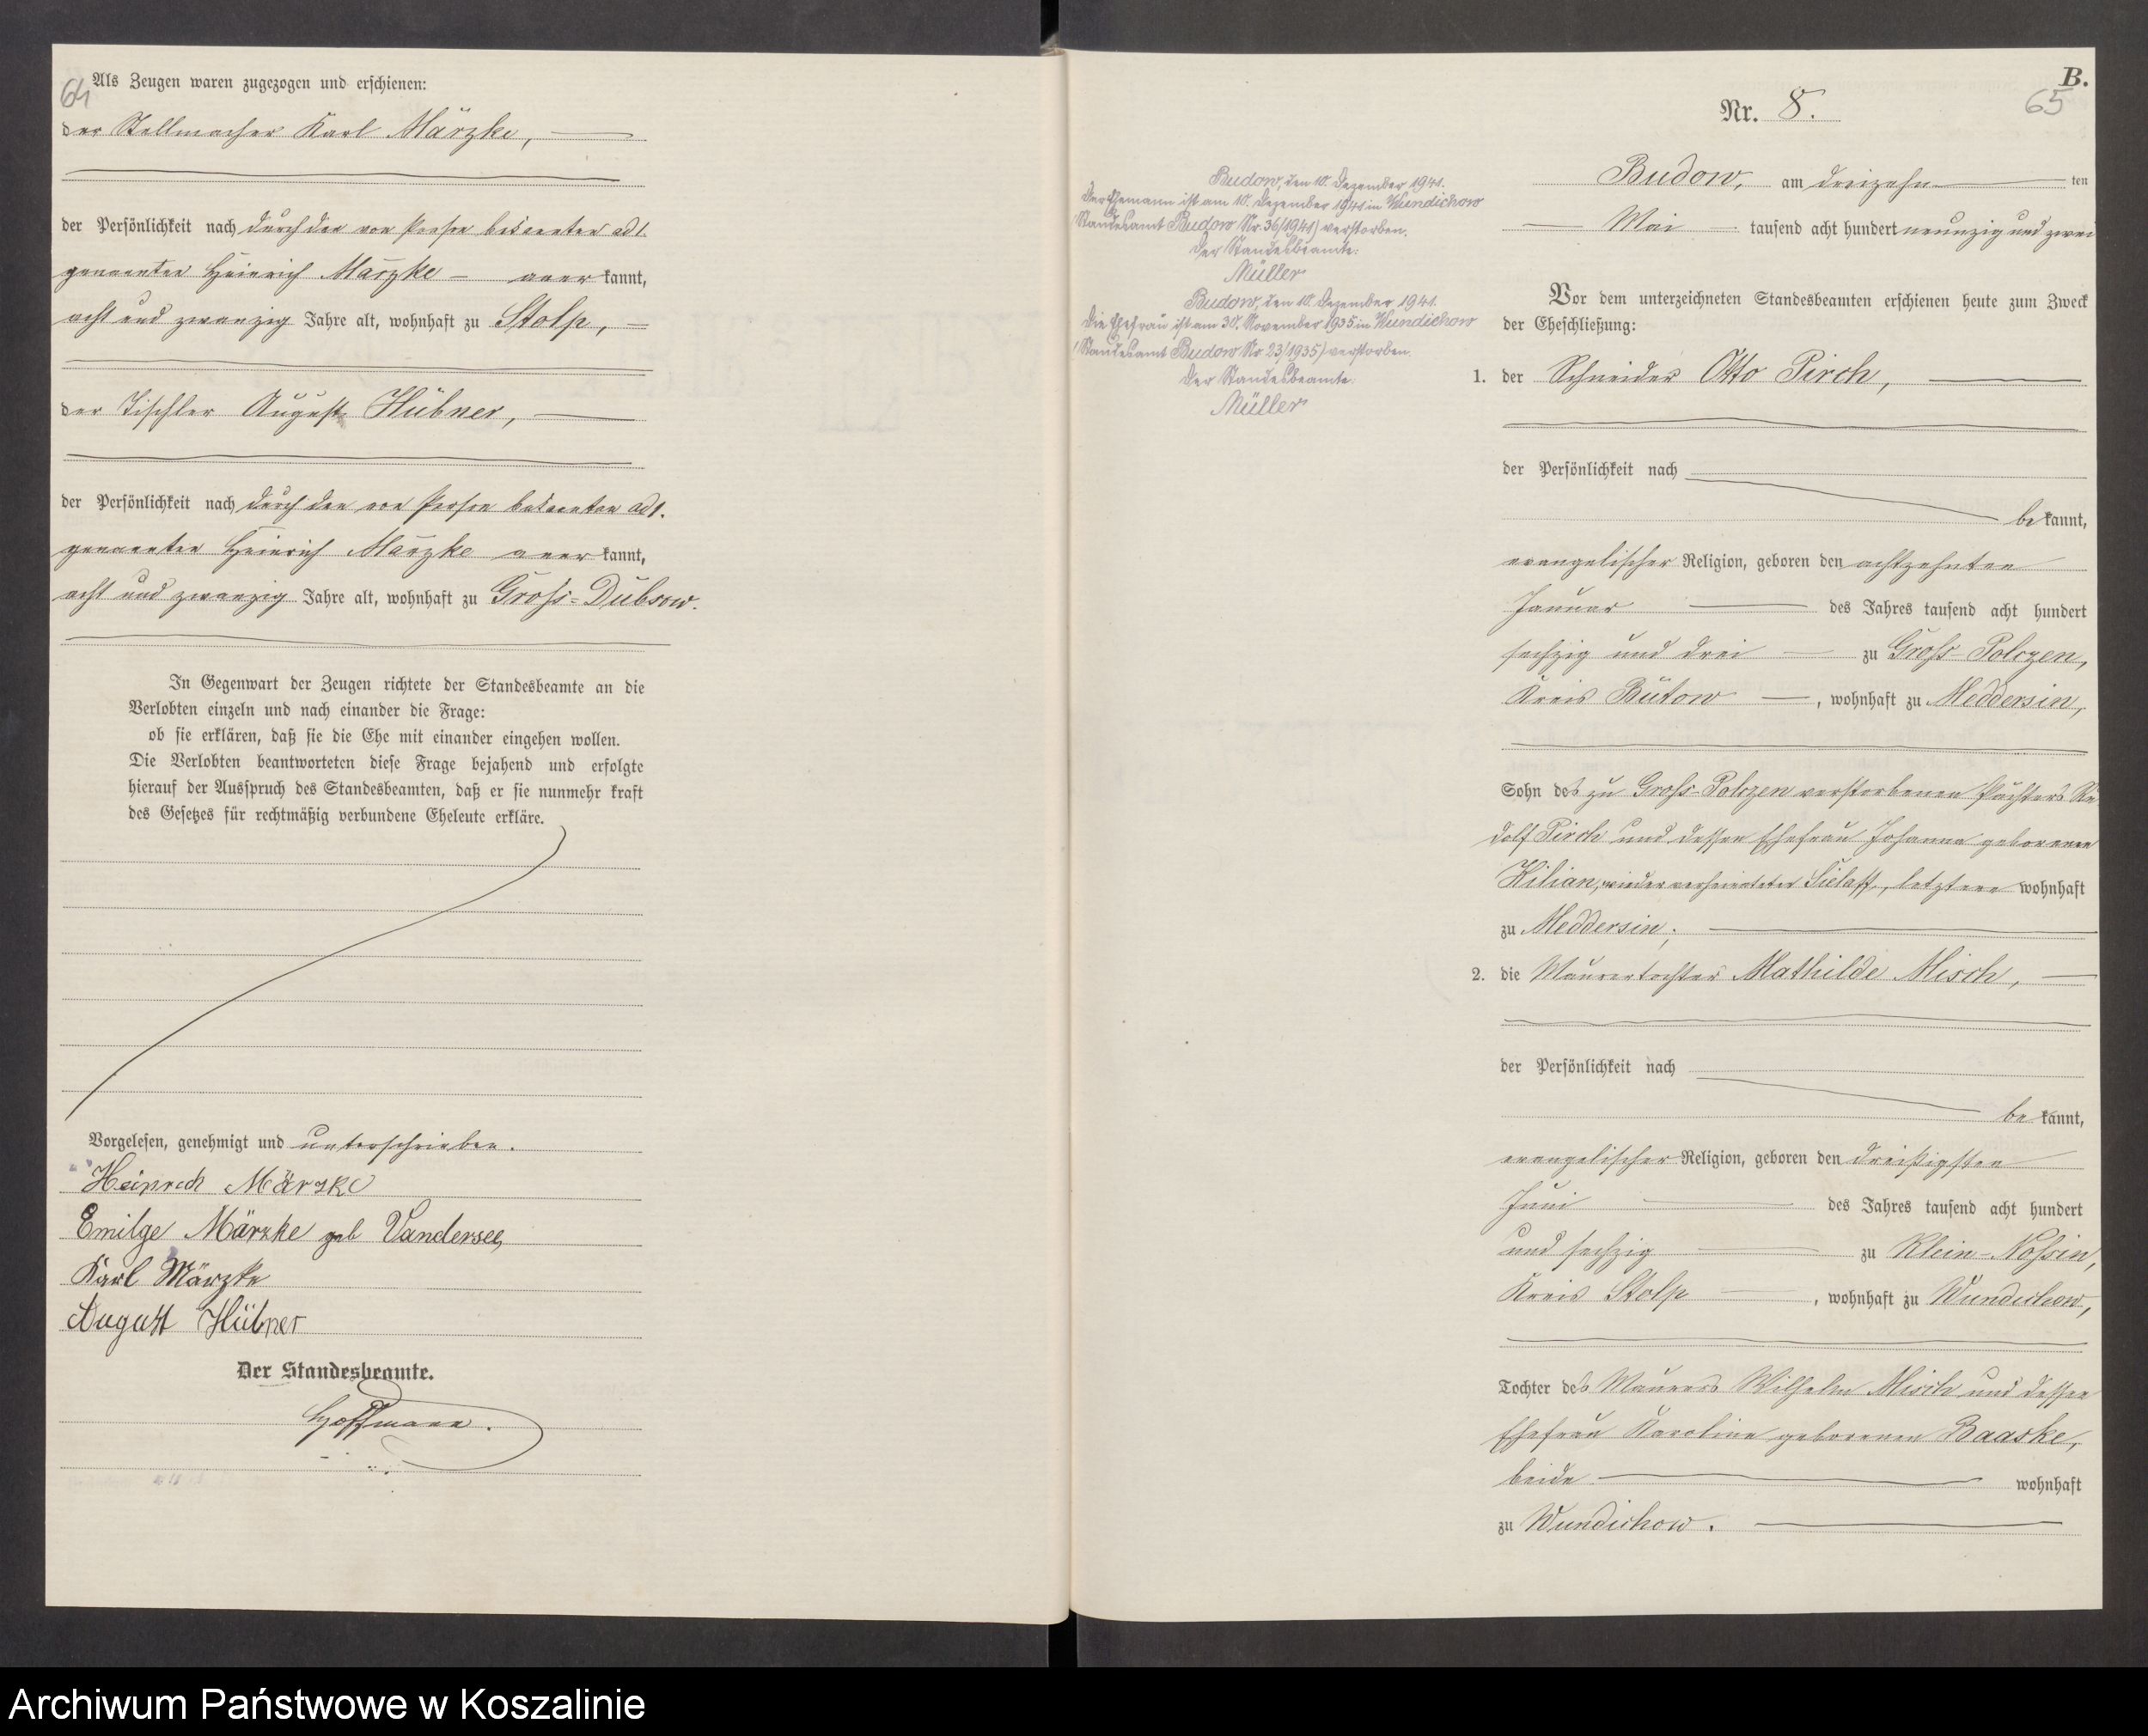 64
Als Zeugen waren zugezogen und erschienen:
der Stellmacher Karl Märzke,
der Persönlichkeit nach durch den von Person bekannten ad 1.
genannten Heinrich Märzke anerkannt,
acht und zwanzig Jahre alt, wohnhaft zu Stolp,
der Tischler August Hübner,
der Persönlichkeit nach durch den von Person bekannten ad 1.
genannten Heinrich Märzke anerkannt,
acht und zwanzig Jahre alt, wohnhaft zu Gross-Dübsow.
In Gegenwart der Zeugen richtete der Standesbeamte an die
Verlobten einzeln und nach einander die Frage:
ob sie erklären, daß sie die Ehe mit einander eingehen wollen.
Die Verlobten beantworteten diese Frage bejahend und erfolgte
hierauf der Ausspruch des Standesbeamten, daß er sie nunmehr kraft
des Gesetzes für rechtmäßig verbundene Eheleute erkläre.
Vorgelesen, genehmigt und unterschrieben.
Heinrich Märzke
Emilge Märzke geb Vandersee
Karl Märzke
August Hübner
Der Standesbeamte.
Hoffmann.
B.
65
Nr. 8.
Budow, am dreizehnten
Mai tausend acht hundert neunzig und zwei
Vor dem unterzeichneten Standesbeamten erschienen heute zum Zweck
der Eheschließung:
1. der Schneider Otto Pirch,
der Persönlichkeit nach
bekannt,
evangelischer Religion, geboren den achtzehnten
Januar des Jahres tausend acht hundert
sechzig und drei zu Gross-Polczen,
Kreis Bütow, wohnhaft zu Meddersin,
Sohn des zu Gross-Polczen verstorbenen Pächters Ru
dolf Pirch und dessen Ehefrau Johanna geborenen
Kilian, wieder verheirateter Sielaff, letztere wohnhaft
zu Meddersin;
2. die Maurertochter Mathilde Misch,
der Persönlichkeit nach
bekannt,
evangelischer Religion, geboren den dreißigsten
Juni des Jahres tausend acht hundert
und sechzig zu Klein-Nossin,
Kreis Stolp, wohnhaft zu Wundichow,
Tochter des Maurers Wilhelm Misch und dessen
Ehefrau Karoline geborenen Baaske,
beide wohnhaft
zu Wundichow.
Budow, den 10. Dezember 1941.
Der Ehemann ist am 10. Dezember 1941 in Wundichow
(Standesamt Budow Nr. 36/1941) verstorben.
Der Standesbeamte:
Müller
Budow, den 10. Dezember 1941.
Die Ehefrau ist am 30. November 1935 in Wundichow
(Standesamt Budow Nr 23/1935) verstorben.
Der Standesbeamte:
Müller
Archiwum Państwowe w Koszalinie